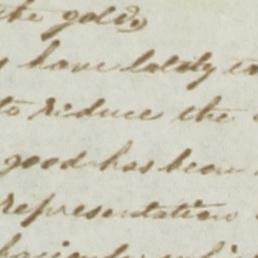 the gold
have lately
to reduce the
good has been
representation